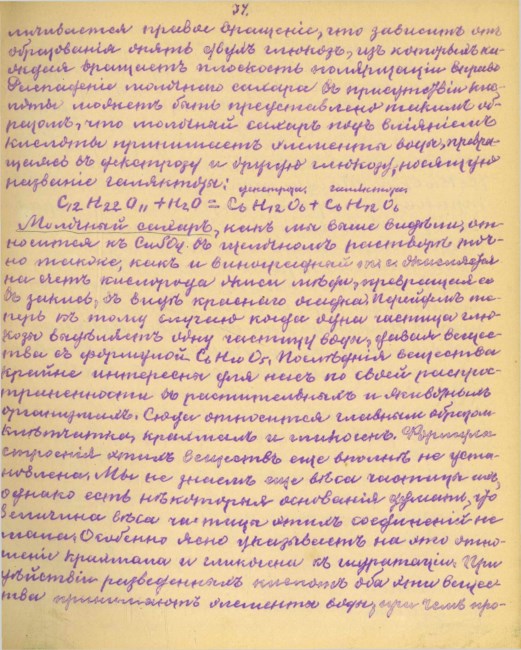 34.
личивается правое вращение, что зависит от
образования опять двух глюкоз, из которых ка-
ждая вращает плоскость поляризации вправо
Распадение молочнаго сахара в присутствии кис-
лоты может быть представлено таким об-
разом, что молочный сахар под влиянием
кислоты принимает элементы воды, превра-
щаясь в декстрозу и другую глюкозу, носящую
название галактозы: декстроза галактоза
C12 H22 O11 + H2O = C6 H12 O6 + C6 H12 O6
Молочный сахар, как мы выше видели, от-
носится к CuSO4 в щелочном растворе точ-
но также, как и виноградный т.е. окисляется
на счет кислорода окиси меди, превращая ее
в закись, в виде краснаго осадка. Перейдем те-
перь к тому случаю когда одна частица глю-
козы выделяет одну частицу воды, давая вещес-
тва с формулой C6 H10 O5. Последния вещества
крайне интересны для нас по своей распрос-
траненности в растительных и животных
организмах. Сюда относится главным образом
клетчатка, крахмал и гликоген. Формула
строения этих веществ еще вполне не уста-
новлена. Мы не знаем еще веса частицы их,
однако есть некоторыя основания думать, что
величина веса частицы этих соединений не
мала. Особенно ясно указывает на это отно-
шение крахмала и гликогена к гидратации. При
действии разведенных кислот оба эти вещес-
тва принимают элементы воды, при чем про-